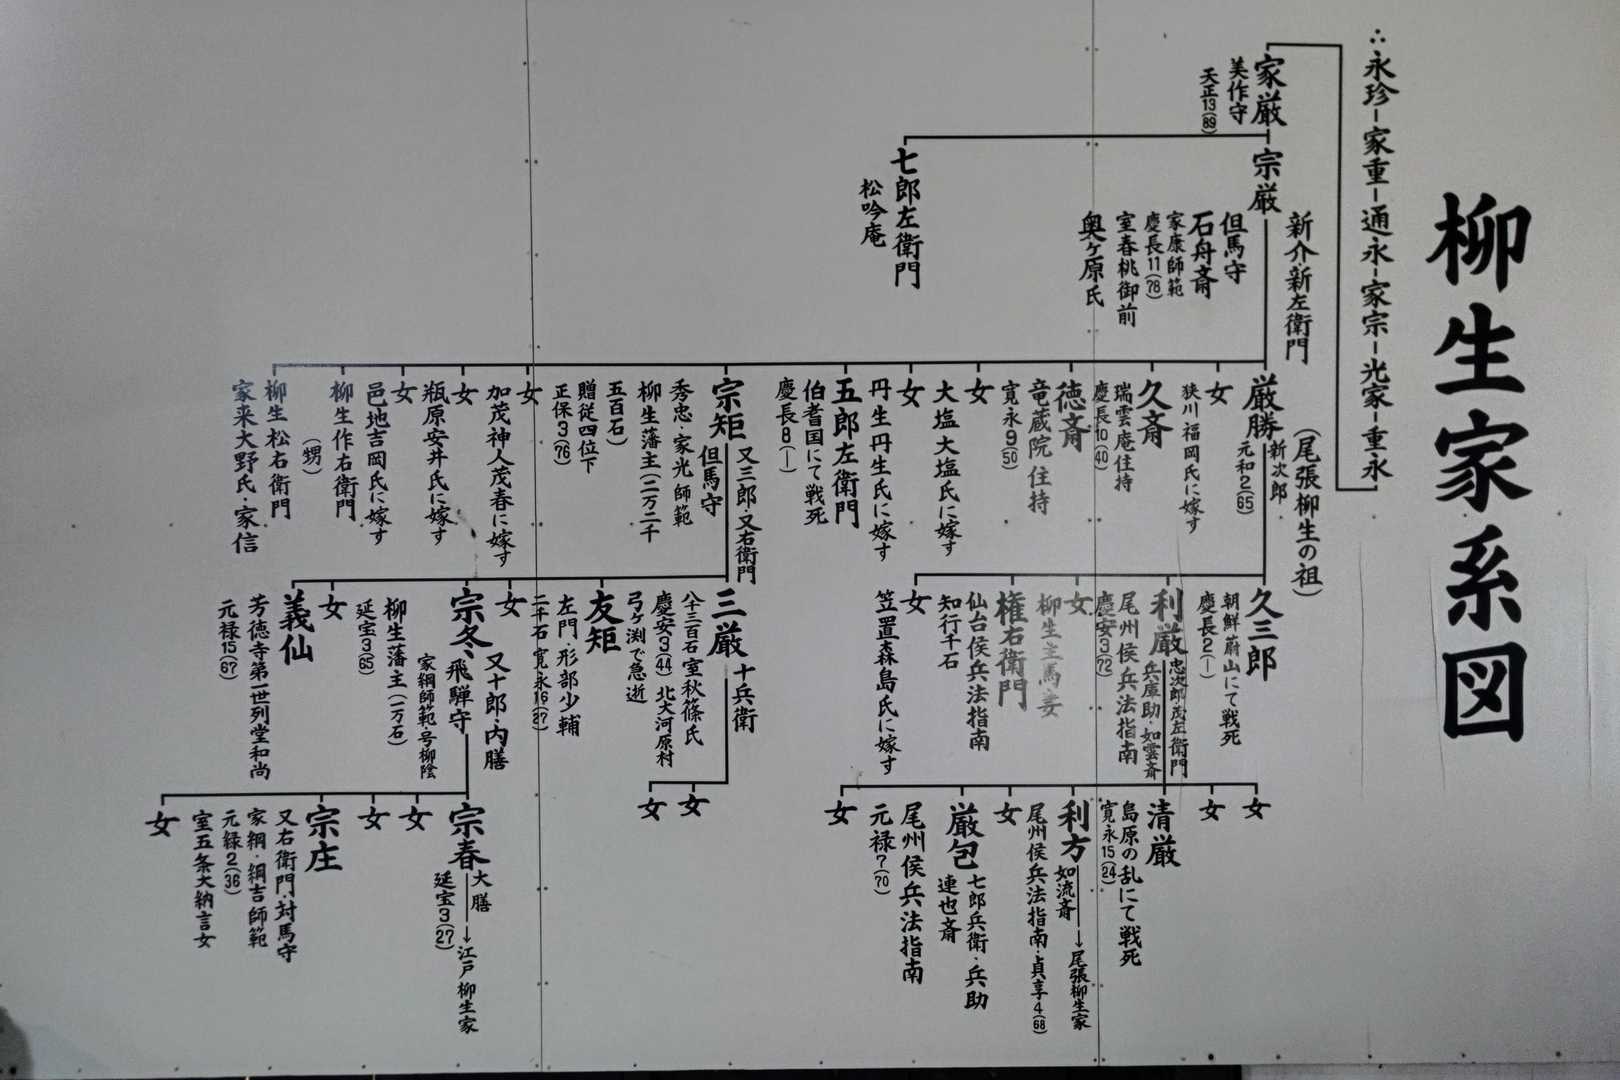 柳生家系図
∴永珍ー家重ー通永ー家宗ー光家ー重永
家厳
美作守
天正13(89)
宗厳
新介・新左衛門
但馬守
石舟斎
家康師範
慶長11(78)
室春桃御前
奥ヶ原氏
七郎左衛門
松吟庵
厳勝
(尾張柳生の祖)
新次郎
元和2(65)
女
狭川福岡氏に嫁す
久斎
瑞雲庵住持
慶長10(40)
徳斎
竜蔵院住持
寛永9(50)
女
大塩大塩氏に嫁す
女
丹生丹生氏に嫁す
五郎左衛門
伯耆国にて戦死
慶長8(ー)
宗矩
又三郎・又右衛門
但馬守
秀忠・家光師範
柳生藩主(一万二千
五百石)
贈従四位下
正保3(76)
女
加茂神人茂春に嫁す
女
瓶原安井氏に嫁す
女
邑地吉岡氏に嫁す
柳生作右衛門
(甥)
柳生松右衛門
家来大野氏・家信
久三郎
朝鮮蔚山にて戦死
慶長2(ー)
利厳
忠次郎・茂左衛門
兵庫助・如雲斎
尾州侯兵法指南
慶安3(72)
女
柳生主馬妻
権右衛門
仙台侯兵法指南
知行千石
女
笠置森島氏に嫁す
三厳
十兵衛
八千三百石 室秋篠氏
慶安3(44) 北大河原村
弓ヶ渕で急逝
友矩
左門・形部少輔
二千石 寛永16(27)
女
宗冬、飛騨守
又十郎・内膳
家綱師範・号柳陰
柳生藩主(一万石)
延宝3(65)
女
義仙
芳徳寺第一世列堂和尚
元禄15(67)
女
女
清厳
島原の乱にて戦死
寛永15(24)
利方
如流斎
→尾張柳生家
尾州侯兵法指南・貞享4(68)
女
厳包
七郎兵衛・兵助
連也斎
尾州侯兵法指南
元禄7(70)
女
女
女
宗春
大膳
→江戸柳生家
延宝3(27)
女
女
宗庄
又右衛門・対馬守
家綱・綱吉師範
元禄2(36)
室五条大納言女
女